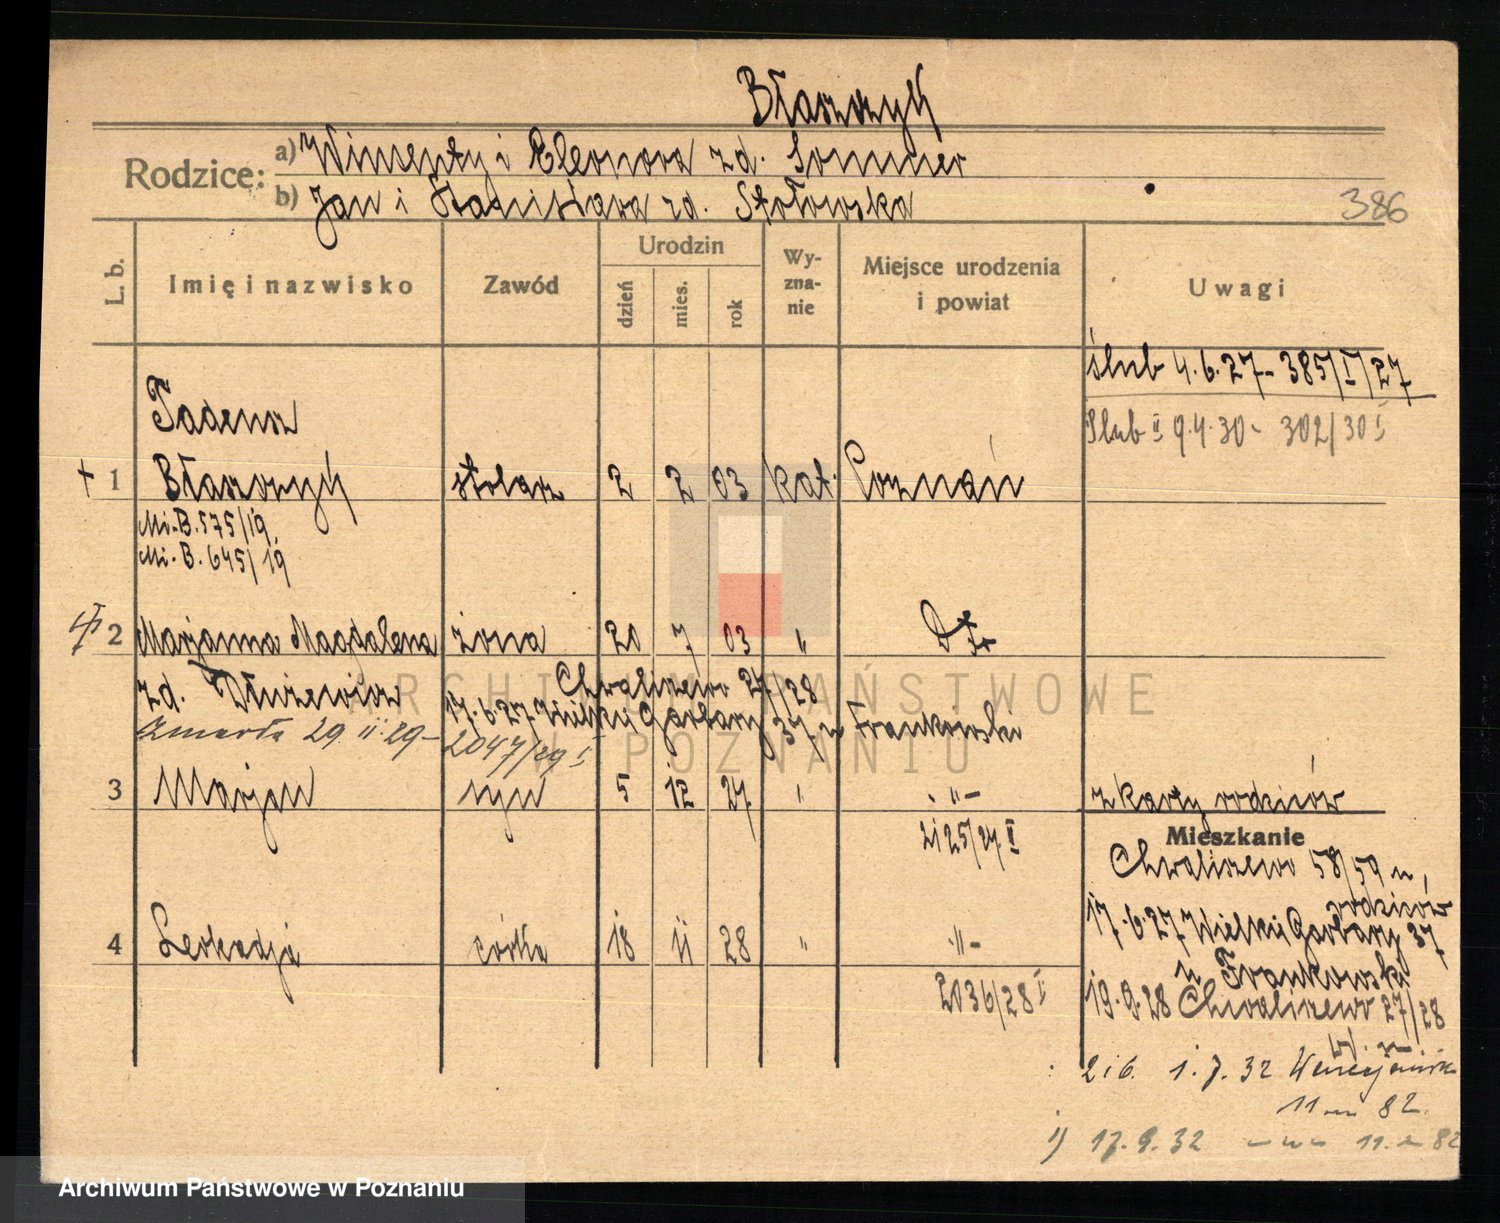 Błaszczyk
Rodzice: a) Wincenty i Eleonora zd. Sommer
b) Jan i Stanisława zd. Szołowska
386
L. b.
Imię i nazwisko
Zawód
Urodzin
dzień
mies.
rok
Wy-
zna-
nie
Miejsce urodzenia
i powiat
Uwagi
ślub 4.6.27 - 385/I/27
Ślub II 9.4.30 - 302/30 I
Tadeusz
+ 1 Błaszczyk stolarz 2 2 03 kat. Poznań
Mi.B.575/19.
Mi.B.645/19
2 Marjanna Magdalena żona 20 7 03 "
zd. Dłużewicz
Chwaliszewo 27/28
17.6.27 Wielkie Garbary 37 u Frankowski
Zmarła 29.11.29 - 2047/29 I
3 Marjan syn 5 12 27 " -"-
z karty rodziców
2125/27 I
Mieszkanie
Chwaliszewo 58/59 u,
rodziców
17.6.27 Wielkie Garbary 37
u Frankowski
4 Leokadja córka 18 11 28 " -"-
2036/28 I
19.9.28 Chwaliszewo 27/28
2 i 6. 1.7.32
11 82.
1) 17.9.32 11 82
ARCHIWUM PAŃSTWOWE
W POZNANIU
Archiwum Państwowe w Poznaniu